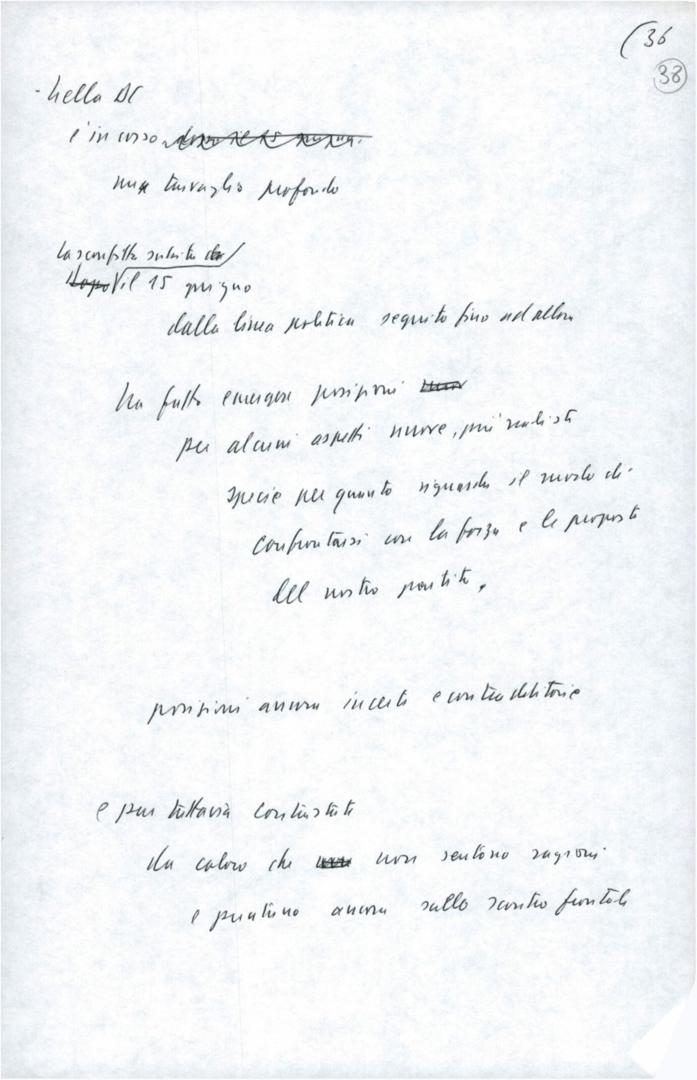 (36
38
- Nella DC
è in corso dopo il 15 giugno
un travaglio profondo
La sconfitta subita da
Dopo il 15 giugno
dalla linea politica seguita fino ad allora
ha fatto emergere posizioni
per alcuni aspetti nuove, più realiste
specie per quanto riguarda il modo di
confrontarsi con la forza e le proposte
del nostro partito,
posizioni ancora incerte e contraddittorie
e pur tuttavia contrastate
da coloro che non sentono ragioni
e puntano ancora sullo scontro frontale